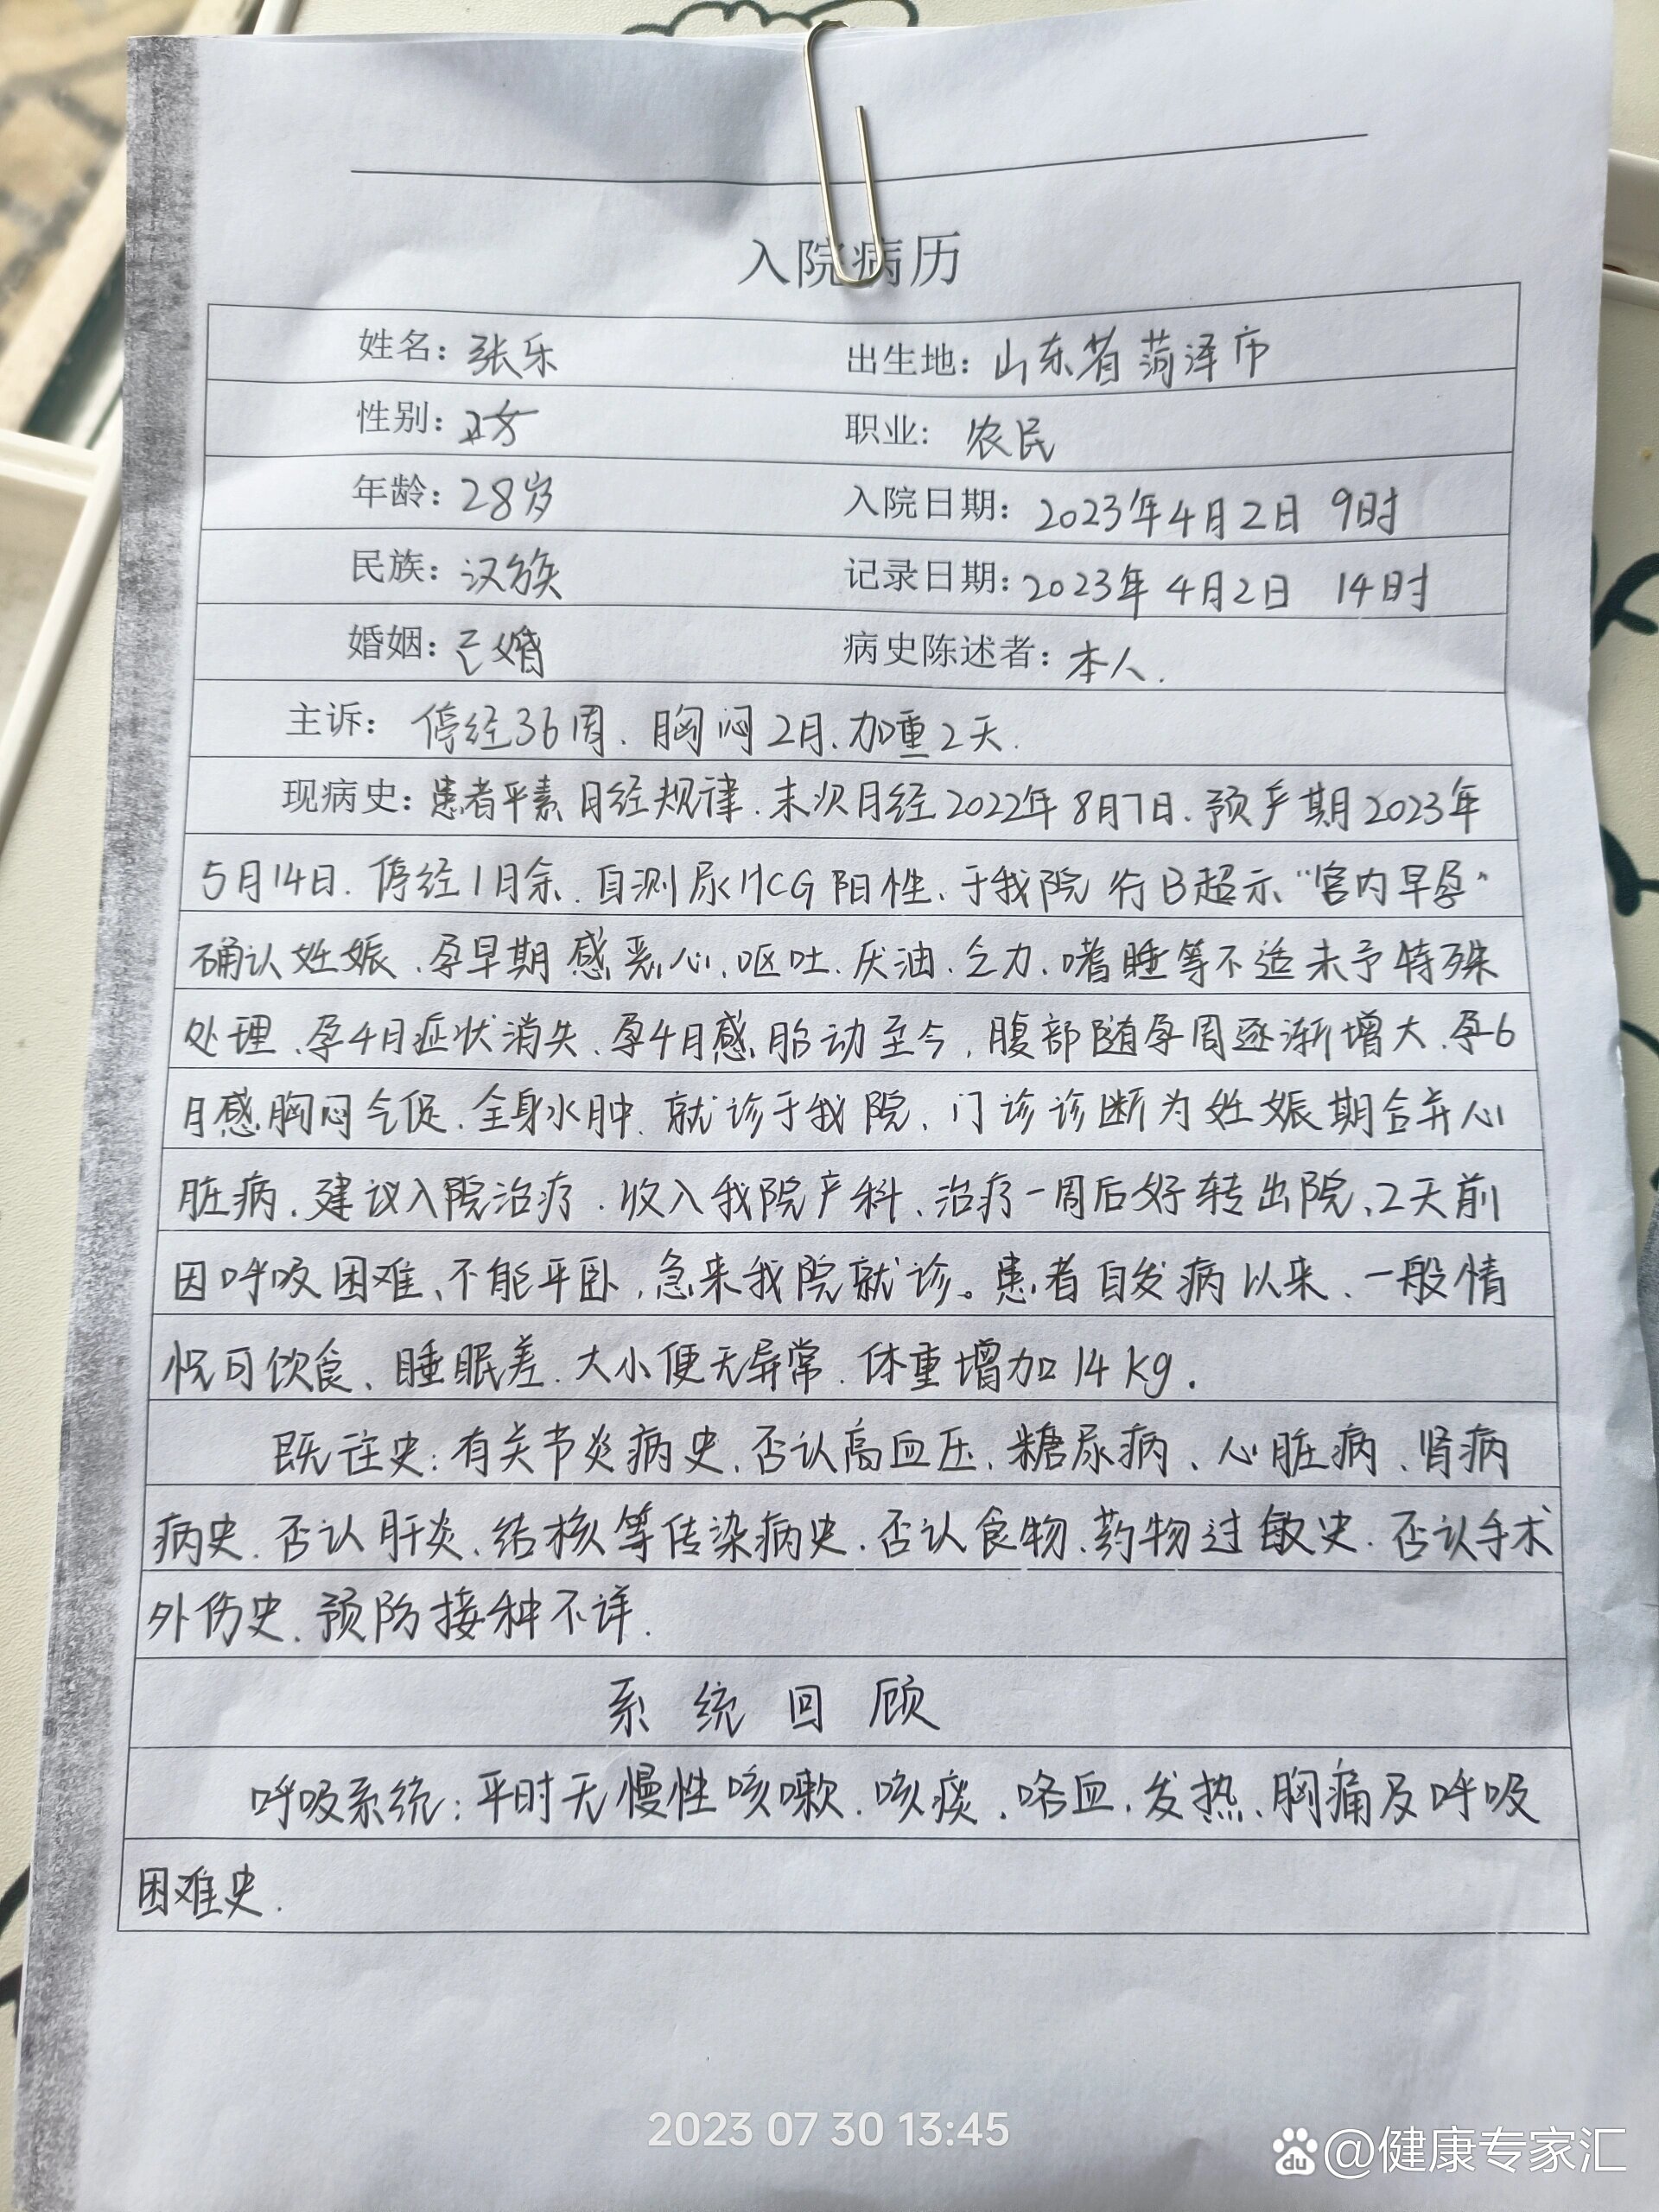 入院病历
姓名：张乐 出生地：山东省菏泽市
性别：女 职业：农民
年龄：28岁 入院日期：2023年4月2日 9时
民族：汉族 记录日期：2023年4月2日 14时
婚姻：已婚 病史陈述者：本人.
主诉：停经36周、胸闷2月、加重2天.
现病史：患者平素月经规律、末次月经2022年8月7日、预产期2023年
5月14日. 停经1月余、自测尿HCG阳性、于我院行B超示“宫内早孕”
确认妊娠、孕早期感恶心、呕吐、厌油、乏力、嗜睡等不适未予特殊
处理、孕4月症状消失、孕4月感胎动至今，腹部随孕周逐渐增大、孕6
月感胸闷气促、全身水肿、就诊于我院、门诊诊断为妊娠期合并心
脏病、建议入院治疗、收入我院产科、治疗一周后好转出院、2天前
因呼吸困难、不能平卧，急来我院就诊。患者自发病以来、一般情
况可饮食、睡眠差、大小便无异常、体重增加14kg.
既往史：有关节炎病史、否认高血压、糖尿病、心脏病、肾病
病史、否认肝炎、结核等传染病史、否认食物、药物过敏史、否认手术
外伤史、预防接种不详.
系统回顾
呼吸系统：平时无慢性咳嗽、咳痰、咯血、发热、胸痛及呼吸
困难史.
2023 07 30 13:45
du @健康专家汇